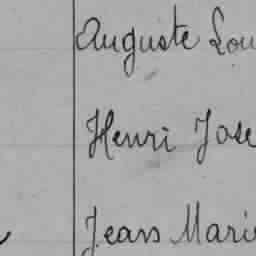 Auguste Lou
Henri Jose
Jean Marie